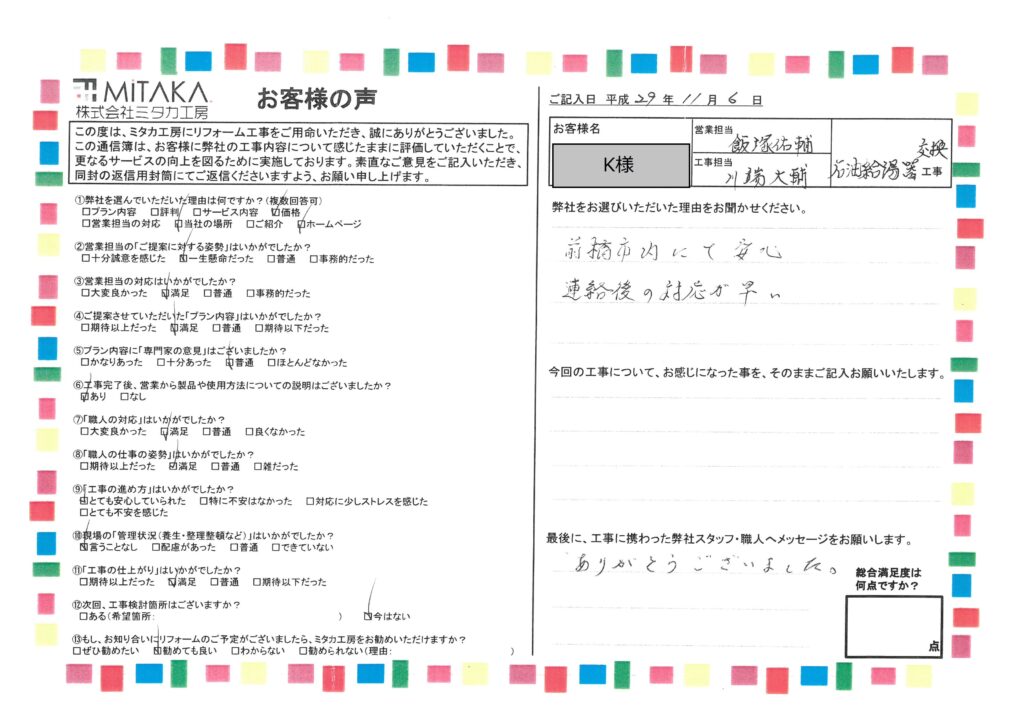 MiTAKA
株式会社ミタカ工房
お客様の声
この度は、ミタカ工房にリフォーム工事をご用命いただき、誠にありがとうございました。
この通信簿は、お客様に弊社の工事内容について感じたままに評価していただくことで、
更なるサービスの向上を図るために実施しております。素直なご意見をご記入いただき、
同封の返信用封筒にてご返信くださいますよう、お願い申し上げます。
①弊社を選んでいただいた理由は何ですか?(複数回答可)
□プラン内容 □評判 □サービス内容 ☑価格
□営業担当の対応 ☑当社の場所 □ご紹介 ☑ホームページ
②営業担当の「ご提案に対する姿勢」はいかがでしたか?
□十分誠意を感じた ☑一生懸命だった □普通 □事務的だった
③営業担当の対応はいかがでしたか?
□大変良かった ☑満足 □普通 □事務的だった
④ご提案させていただいた「プラン内容」はいかがでしたか?
□期待以上だった ☑満足 □普通 □期待以下だった
⑤プラン内容に「専門家の意見」はございましたか?
□かなりあった □十分あった ☑普通 □ほとんどなかった
⑥工事完了後、営業から製品や使用方法についての説明はございましたか?
☑あり □なし
⑦「職人の対応」はいかがでしたか?
□大変良かった ☑満足 □普通 □良くなかった
⑧「職人の仕事の姿勢」はいかがでしたか?
□期待以上だった ☑満足 □普通 □雑だった
⑨「工事の進め方」はいかがでしたか?
☑とても安心していられた □特に不安はなかった □対応に少しストレスを感じた
□とても不安を感じた
⑩現場の「管理状況(養生・整理整頓など)」はいかがでしたか?
☑言うことなし □配慮があった □普通 □できていない
⑪「工事の仕上がり」はいかがでしたか?
□期待以上だった ☑満足 □普通 □期待以下だった
⑫次回、工事検討箇所はございますか?
□ある(希望箇所: ) ☑今はない
⑬もし、お知り合いにリフォームのご予定がございましたら、ミタカ工房をお勧めいただけますか?
□ぜひ勧めたい ☑勧めても良い □わからない □勧められない(理由: )
ご記入日 平成 29 年 11 月 6 日
お客様名
K様
営業担当
飯塚佑輔
工事担当
川端大輔
交換
石油給湯器 工事
弊社をお選びいただいた理由をお聞かせください。
前橋市内にて安心
連絡後の対応が早い
今回の工事について、お感じになった事を、そのままご記入お願いいたします。
最後に、工事に携わった弊社スタッフ・職人へメッセージをお願いします。
ありがとうございました。
総合満足度は
何点ですか?
点